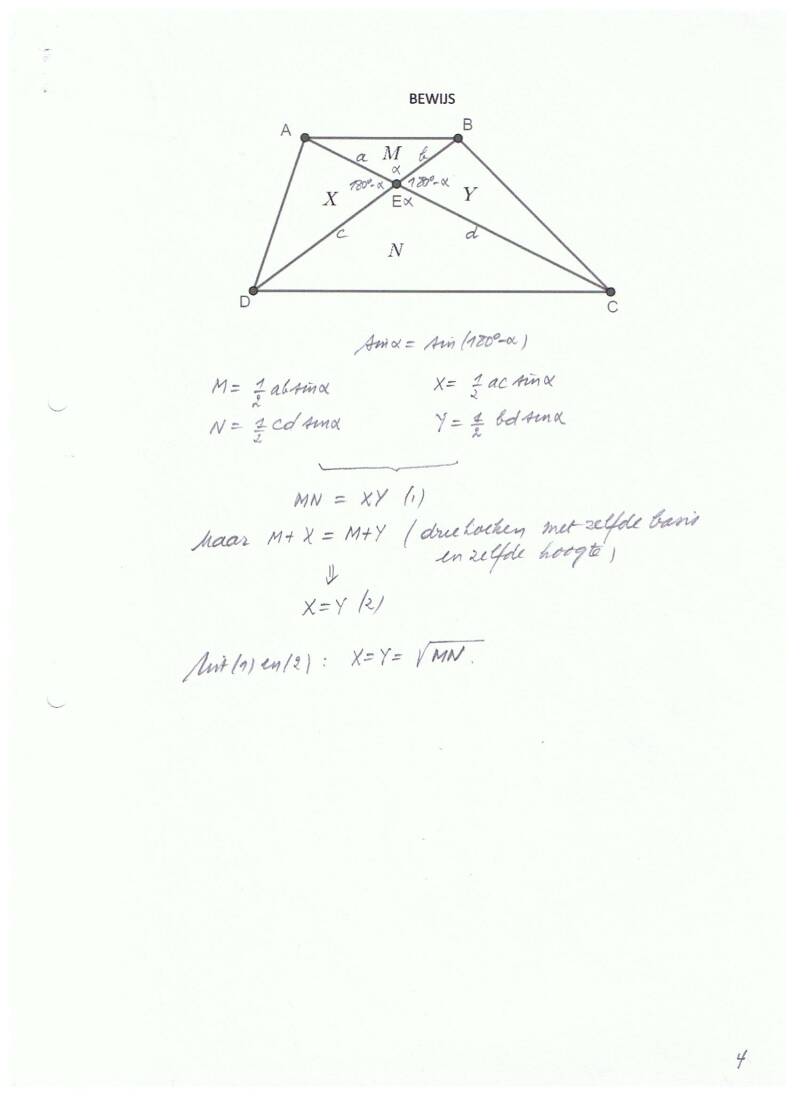 BEWIJS
A
B
a M b
α
180°-α 180°-α
X Eα Y
c d
N
D
C
sinα = sin(180°-α)
M = 1/2 ab sinα X = 1/2 ac sinα
N = 1/2 cd sinα Y = 1/2 bd sinα
MN = XY (1)
Maar M+X = M+Y (driehoeken met zelfde basis
en zelfde hoogte)
⇓
X=Y (2)
Uit (1) en (2): X=Y= √MN.
4